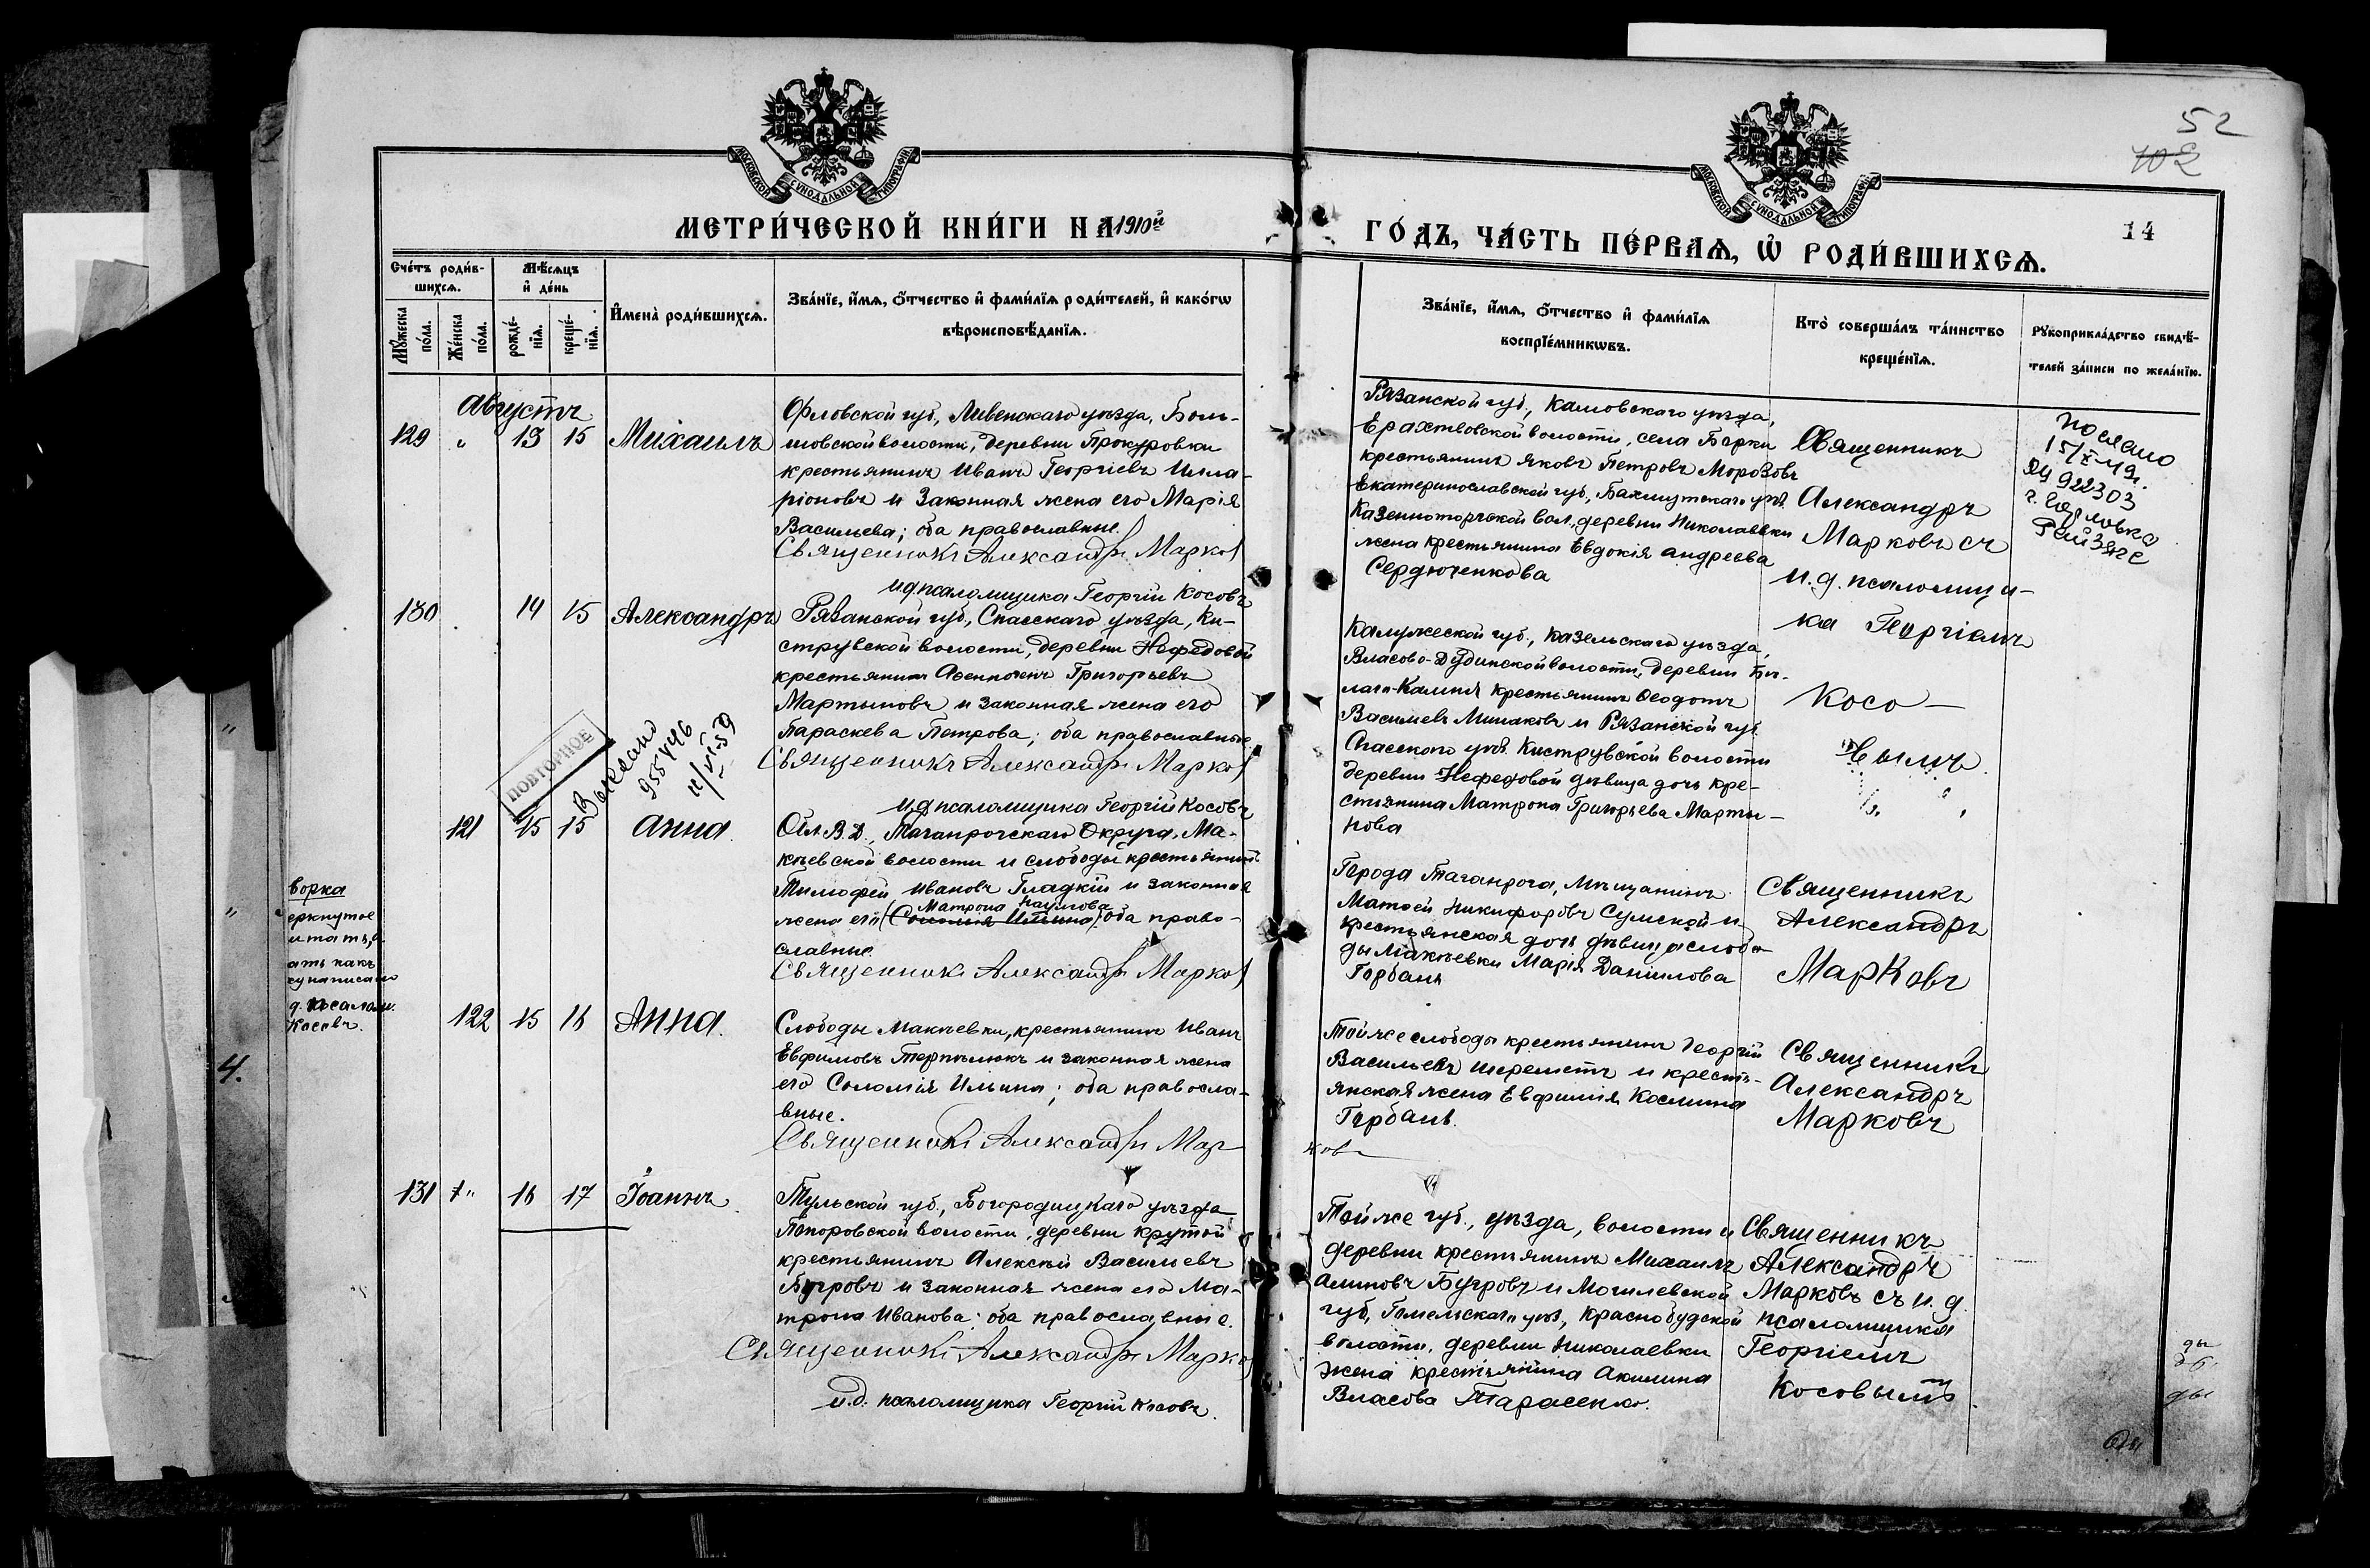 52
102
14
МОСКОВСКОЙ СѴНОДАЛЬНОЙ ТИПОГРАФІИ
МОСКОВСКОЙ СѴНОДАЛЬНОЙ ТИПОГРАФІИ
МЕТРИ́ЧЕСКОЙ КНИ́ГИ НА 1910й
ГО́ДЪ, ЧА́СТЬ ПЕ́РВАѦ, Ѽ РОДИ́ВШИХСѦ.
Сче́тъ роди́в-
шихсѧ.
Мꙋ́жеска
по́ла.
Же́нска
по́ла.
Мѣ́сѧцъ
и҆ де́нь
рожде́-
нїѧ.
креще́-
нїѧ.
И҆мена̀ роди́вшихсѧ.
Зва́нїе, и҆́мѧ, ѻ҆́тчество и҆ фами́лїѧ роди́телей, и҆ како́гѡ
вѣроисповѣ́данїѧ.
Зва́нїе, и҆́мѧ, ѻ҆́тчество и҆ фами́лїѧ
воспрїе́мникѡвъ.
Кто̀ соверша́лъ та́инство
креще́нїѧ.
Рꙋкоприкла́дство свидѣ́-
телей за́писи по жела́нїю.
Августъ
129 " 13 15 Михаилъ
Орловской губ., Ливенскаго уѣзда, Боль-
шовской волости, деревни Прокуровки
крестьянинъ Иванъ Георгіевъ Илла-
ріоновъ и законная жена его Марія
Васильева; оба православные.
Священникъ Александръ Марковъ
и.д. псаломщика Георгій Косовъ
Рязанской губ., Касимовскаго уѣзда,
Ерахтовской волости, села Борки
крестьянинъ Яковъ Петровъ Морозовъ
Екатеринославской губ., Бахмутскаго уѣз.
Казенноторской вол., деревни Николаевки
жена крестьянина Евдокія Андреева
Сердюченкова
Священникъ
Александръ
Марковъ съ
и.д. псаломщи-
ка Георгіемъ
Косо-
вымъ
Послано
15/X-49г.
ЯЦ 922303
г. Горловка
РайЗАГС
130 14 15 Александръ
Рязанской губ., Спасскаго уѣзда, Ки-
струвской волости, деревни Нефедовой
крестьянинъ Афиногенъ Григорьевъ
Мартыновъ и законная жена его
Параскева Петрова; оба православные.
Священникъ Александръ Марковъ
и.д. псаломщика Георгій Косовъ
Калужской губ., Козельскаго уѣзда,
Власово-Дудинской волости, деревни Бѣ-
лаго-Камня крестьянинъ Ѳеодотъ
Васильевъ Минаковъ и Рязанской губ.
Спасскаго уѣз. Киструвской волости
деревни Нефедовой дѣвица дочь кре-
стьянина Матрона Григорьева Марты-
нова
ПОВТОРНОЕ
Выслано
955496
11/VI-59
121 15 15 Анна
Обл. В. Д., Таганрогскаго Округа, Ма-
кѣевской волости и слободы крестьянинъ
Тимофей Ивановъ Гладкій и законная
Матрона Наумова
жена его (Соломія Ильина); оба право-
славные.
Священникъ Александръ Марковъ
Города Таганрога, Мѣщанинъ
Матѳей Никифоровъ Сумской и
крестьянская дочь дѣвица слобо-
ды Макѣевки Марія Даніилова
Горбань
Священникъ
Александръ
Марковъ
ворка
еркнутое
итать, а
ать какъ
ху написано
д. псалом.
Косовъ.
4.
122 15 16 Анна.
Слободы Макѣевки, крестьянинъ Иванъ
Евфимовъ Терпелюкъ и законная жена
его Соломія Ильина; оба правосла-
вные.
Священникъ Александръ Мар-
ковъ
Той же слободы крестьянинъ Георгій
Васильевъ Шереметъ и кресть-
янская жена Евфимія Космина
Горбань.
Священникъ
Александръ
Марковъ
131 " 16 17 Іоаннъ
Тульской губ., Богородицкаго уѣзда
Папоровской волости, деревни Крутой
крестьянинъ Алексѣй Васильевъ
Бугровъ и законная жена его Ма-
трона Иванова; оба православные.
Священникъ Александръ Марковъ
и.д. псаломщика Георгій Косовъ.
Той же губ., уѣзда, волости и
деревни крестьянинъ Михаилъ
Алиповъ Бугровъ и Могилевской
губ., Гомельскаго уѣз., Краснобудской
волости, деревни Николаевки
жена крестьянина Акилина
Власова Тарасенко.
Священникъ
Александръ
Марковъ съ и.д.
псаломщика
Георгіемъ
Косовымъ